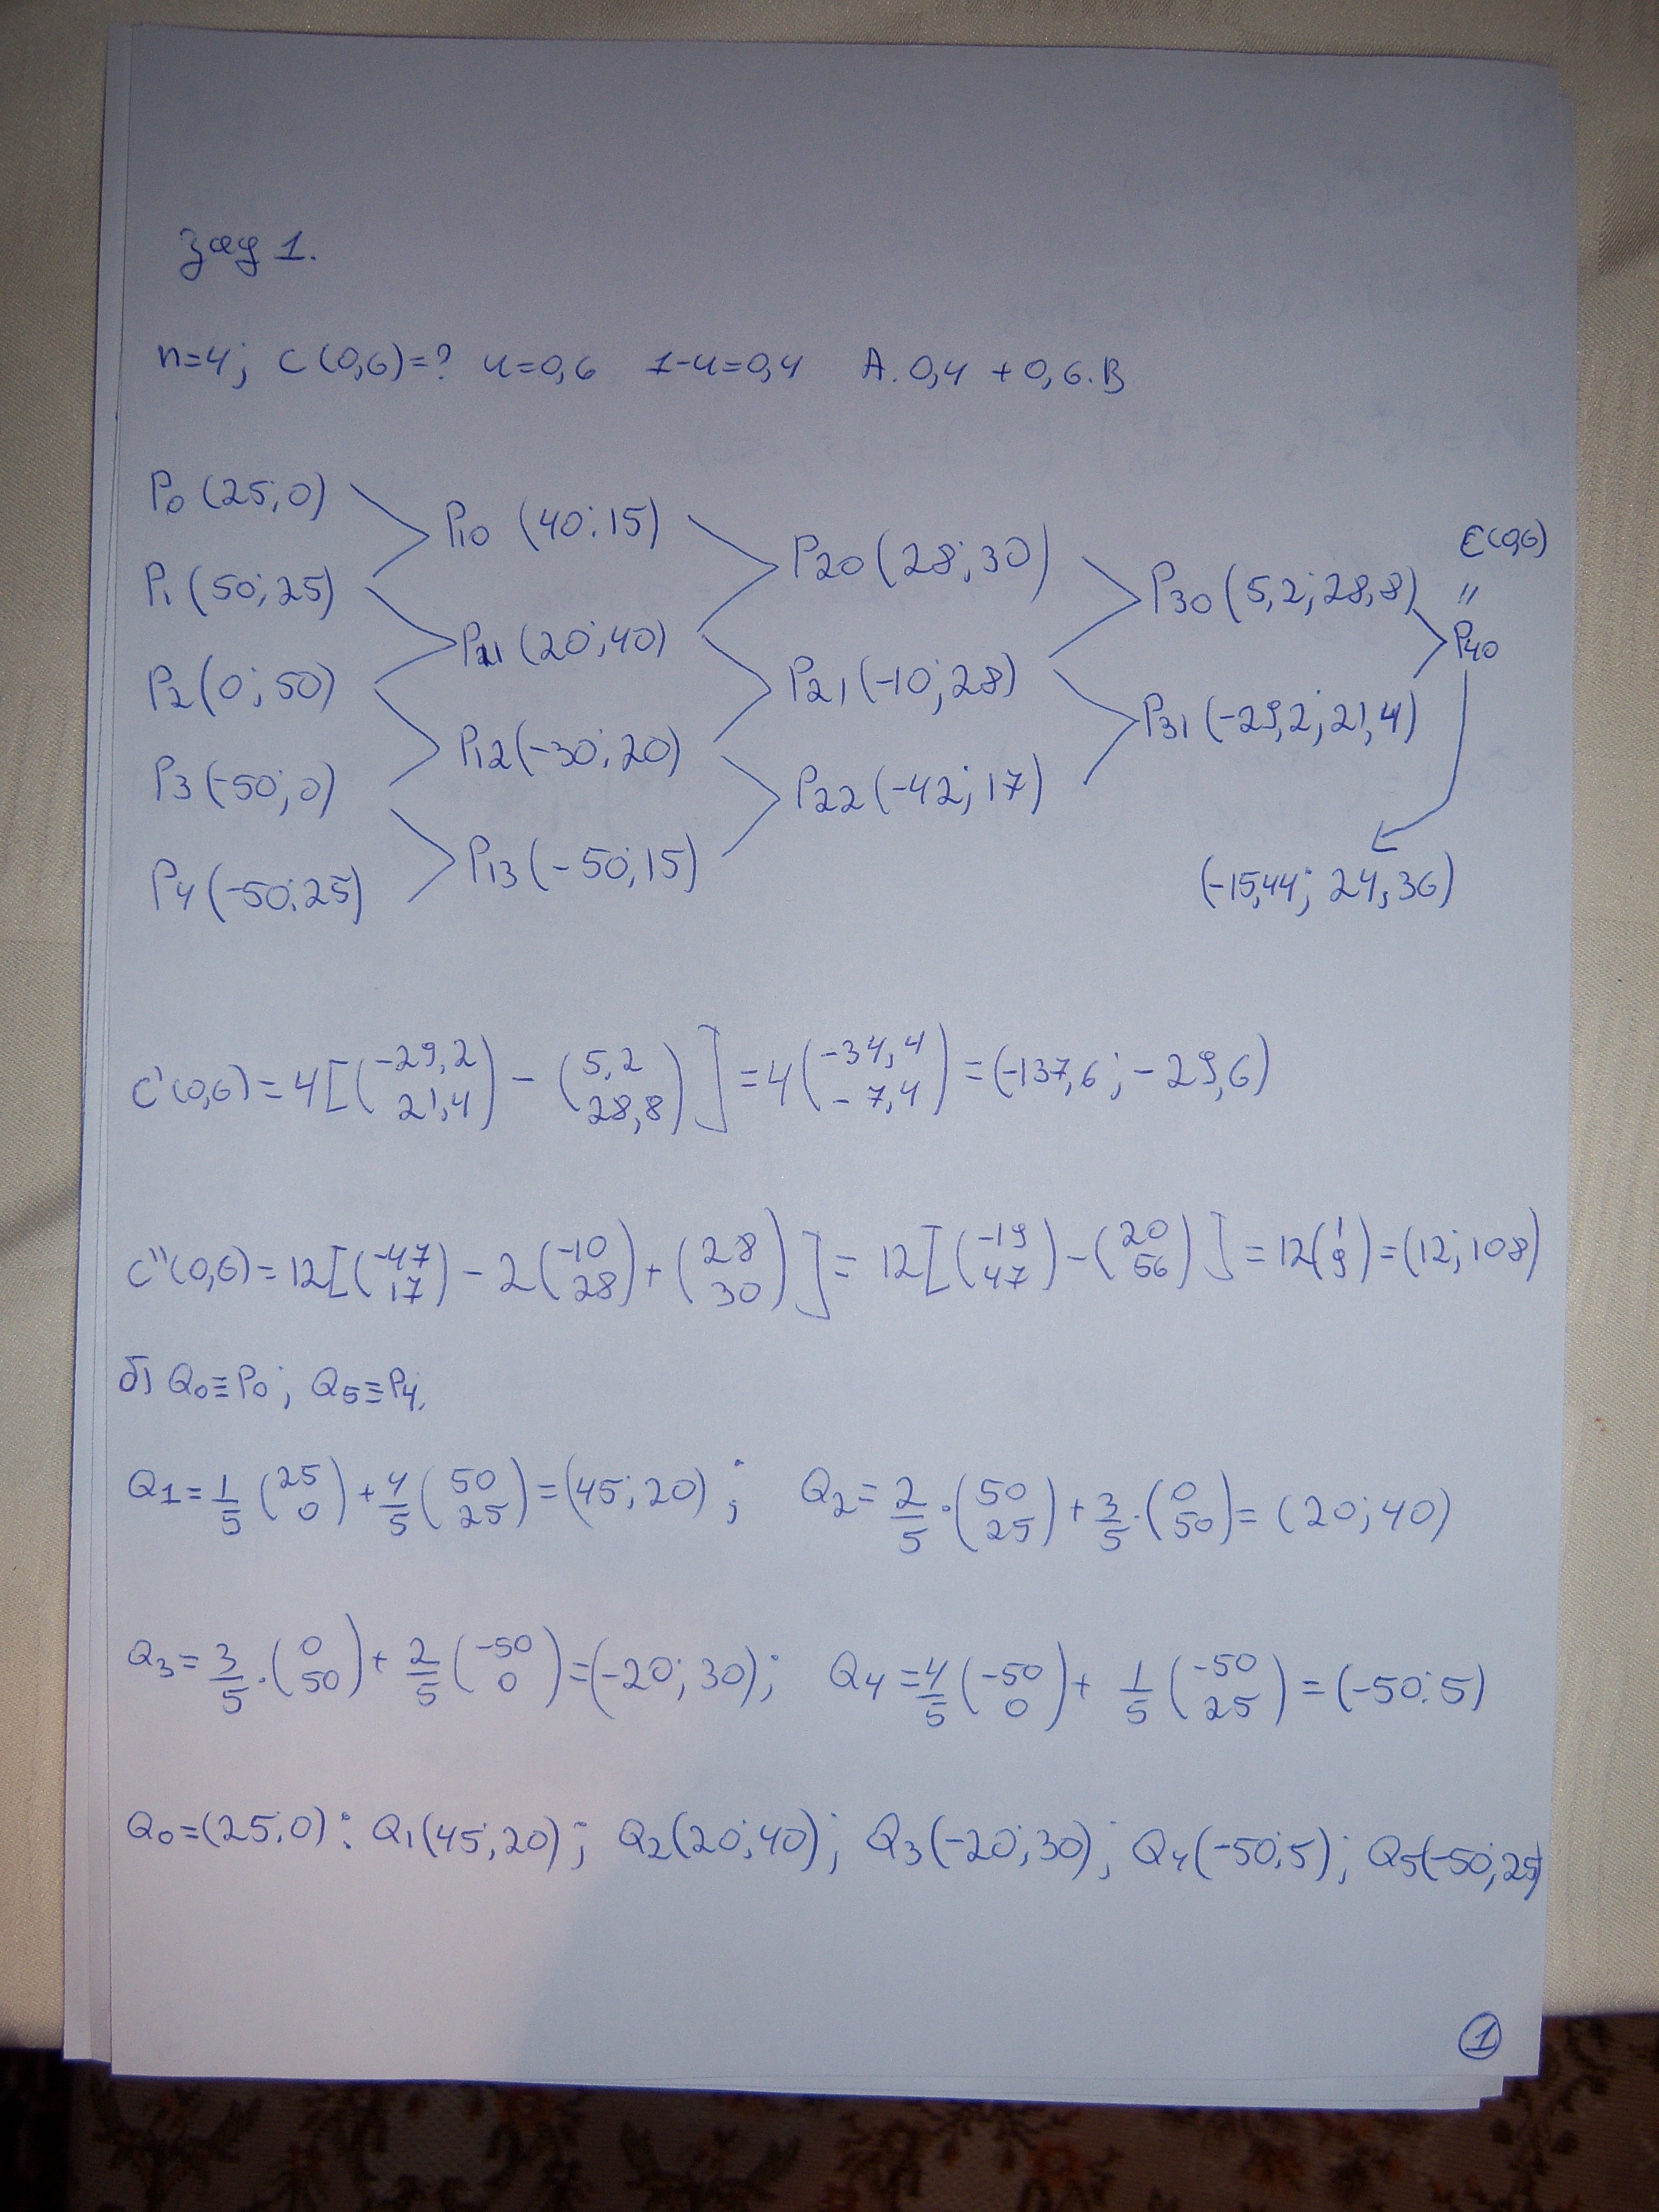 зад 1.
n=4; C(0,6)=? u=0,6 1-u=0,4 A.0,4 + 0,6.B
P0 (25;0)
P1 (50;25)
P2 (0;50)
P3 (-50;0)
P4 (-50;25)
P10 (40;15)
P11 (20;40)
P12 (-30;20)
P13 (-50;15)
P20 (28;30)
P21 (-10;28)
P22 (-42;17)
P30 (5,2;28,8)
P31 (-29,2;21,4)
C(0,6)
"
P40
(-15,44; 24,36)
C'(0,6) = 4[(-29,2 21,4) - (5,2 28,8)] = 4(-34,4 -7,4) = (-137,6; -29,6)
C"(0,6) = 12[(-47 17) - 2(-10 28) + (28 30)] = 12[(-19 47) - (20 56)] = 12(1 9) = (12; 108)
б) Q0≡P0; Q5≡P4.
Q1 = 1/5 (25 0) + 4/5 (50 25) = (45;20); Q2 = 2/5 . (50 25) + 3/5 . (0 50) = (20;40)
Q3 = 3/5 . (0 50) + 2/5 (-50 0) = (-20;30); Q4 = 4/5 (-50 0) + 1/5 (-50 25) = (-50;5)
Q0=(25;0); Q1(45;20); Q2(20;40); Q3(-20;30); Q4(-50;5); Q5(-50;25)
1